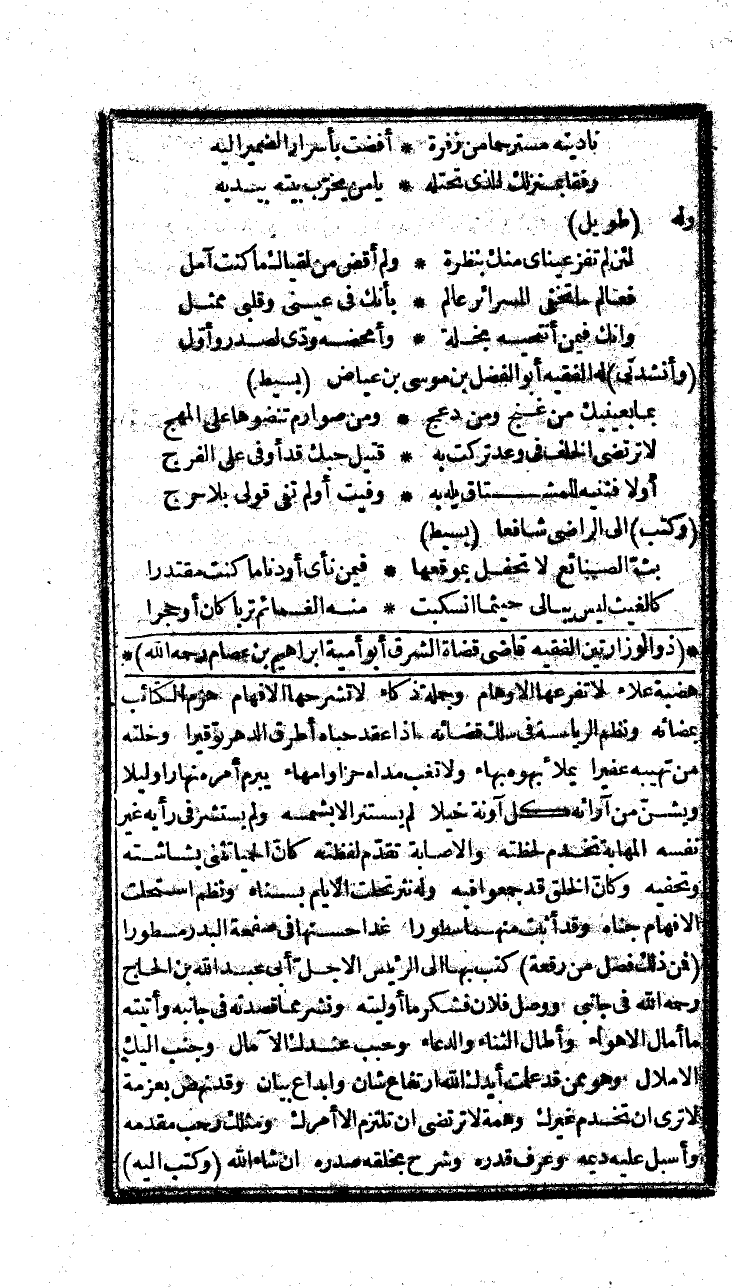 ناديته مسترحما من زفرة * أفضت بأسرار الضمير اليه
رفقا بمنزلك الذى تحتله * يا من يخرب بيته بيديه
وله (طويل)
لئن لم تفز عيناى منك بنظرة * ولم أقض من لقياك ما كنت آمل
فعالم ما تخفى السرائر عالم * بأنك فى عينى وقلبى ممثل
وانك فيمن أتصيه بخلة * وأمحضه ودى لصدر وأول
(وأنشدنى) له الفقيه أبو الفضل بن موسى بن عياض (بسيط)
بما بعينيك من غنج ومن دعج * ومن صوارم تنضوها على المهج
لا ترتضى الخلف فى وعد تركت به * قتيل حبك قد أوفى على الفرج
أولا فتنيه للمشتاق يله به * وفيت أولم تفى قولى بلا حرج
(وكتب) الى الراضى شافعا (بسيط)
بث الصنائع لا تحفل بموقعها * فيمن نأى أو دنا ما كنت مقتدرا
كالغيث ليس يبالى حيثما انسكبت * منه الغمائم تربا كان أو حجرا
*(ذو الوزارتين الفقيه قاضى قضاة الشرق أبو أمية ابراهيم بن عصام رحمه الله)*
هضبة علاء لا تفرعها الاوهام وجملة ذكاء لا تشرحها الافهام هزم الكتائب
بمضائه ونظم الرياسة فى سلك قضائه اذا عقد حباه أطرق الدهر توقيرا وخلته
من تهيبه عفيرا يملأ بهوه بهاء ولا تغب مداه حزا وامهاء يبرم أمره نهارا وليلا
ويشن من آرائه كل آونة خيلا لم يستتر الا بشمسه ولم يستشر فى رأيه غير
نفسه المهابة تخدم لحظته والاصابة تقدم لفظته كان الحيا تفئ بشاشته
وتحفيه وكان الخلق قد جمعوا فيه وله نثر تحلت الايام بسناه ونظم استحلت
الافهام جناه وقد أثبت منهما سطورا غدا حسنها فى صفحة البدر مسطورا
(فمن ذلك فصل من رقعة) كتب بها الى الرئيس الاجل أبى عبد الله بن الحاج
رحمه الله فى جانبى ووصل فلان فشكر ما أوليته ونشر عما قصدته فى جانبه وأتيته
ما أمال الاهواء وأطال الثناء والدعاء وحبب عندك الآمال وجنب اليك
الاملال وهو بمن قد علمت أيدك الله ارتفاع شان وابداع بيان وقد نهض بعزمة
لا ترى ان تخدم غيرك وهمة لا ترتضى ان تلتزم الا أمرك ومثلك رحب مقدمه
وأسبل عليه ديمه وعرف قدره وشرح بخلقه صدره ان شاء الله (وكتب اليه)